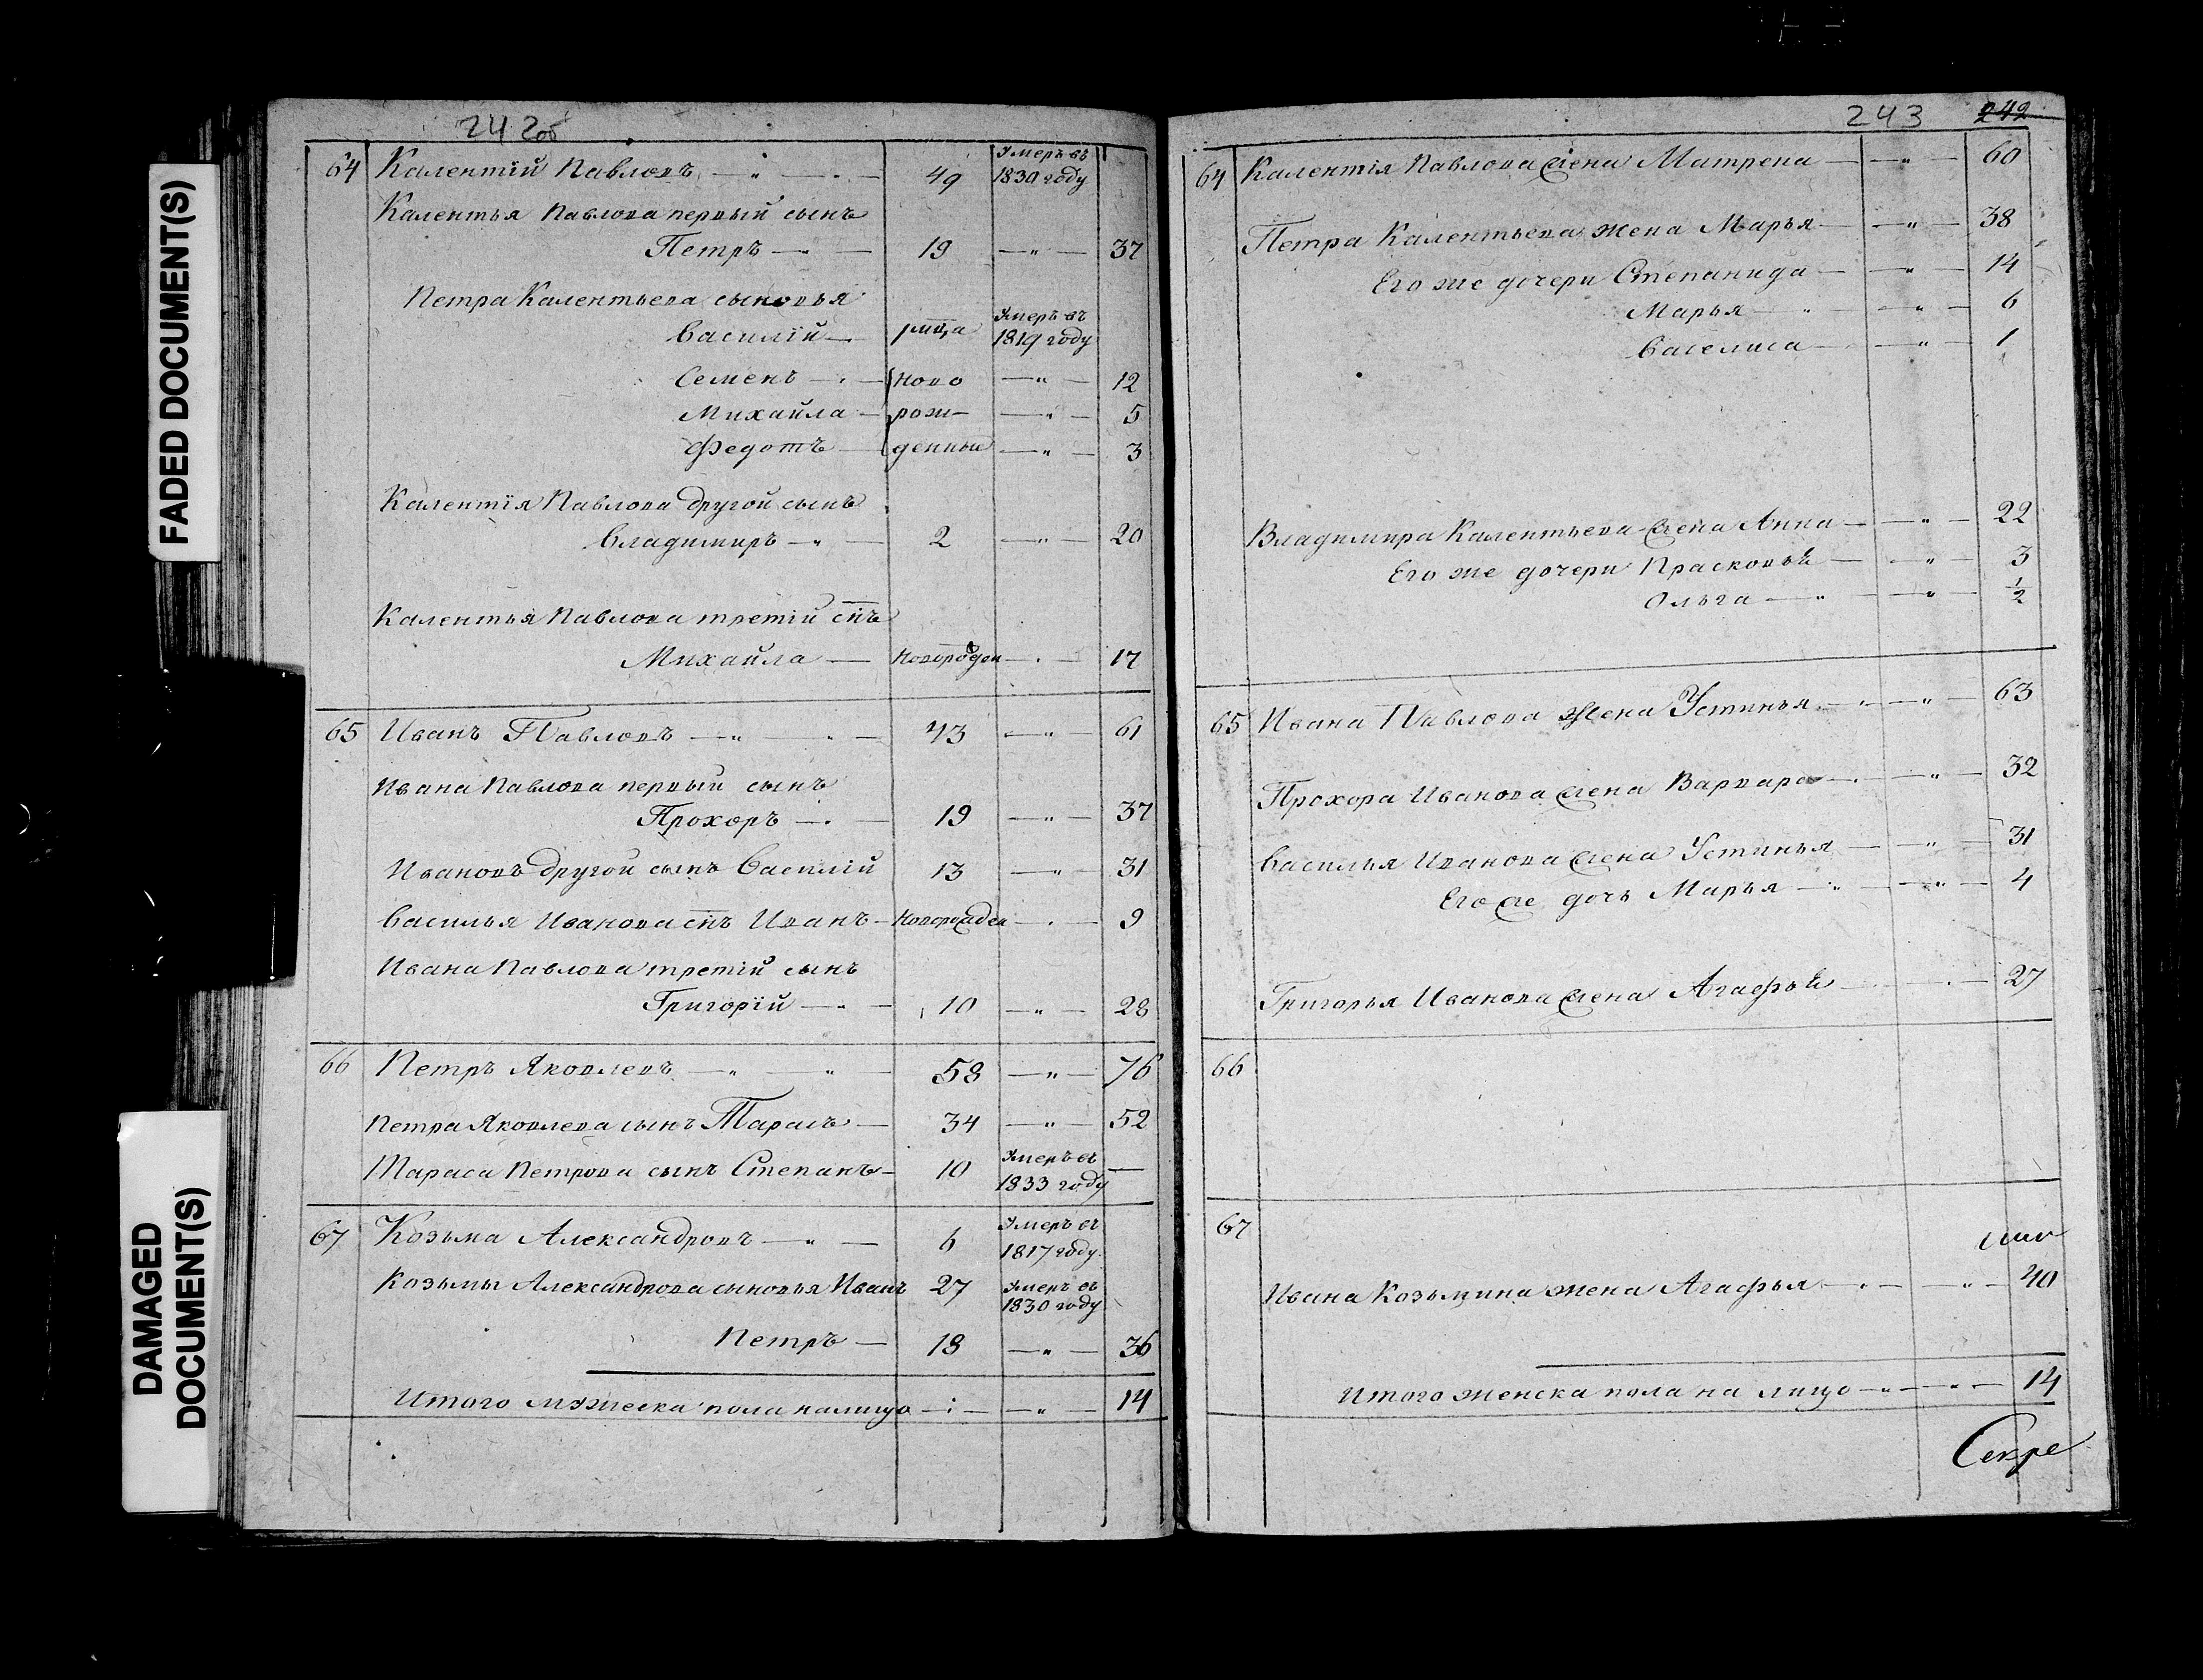 FADED DOCUMENT(S)
DAMAGED
DOCUMENT(S)
242об
64 Калентїй Павловъ — " — 49 Умеръ въ
1830 году
Калентья Павлова первый сынъ
Петръ — 19 — " — 37
Петра Калентьева сыновья
Василїй — Умеръ въ
1819 году
Семенъ — ново — " — 12
Михайла — рож- — " — 5
Федотъ — денныи — " — 3
Калентїя Павлова другой сынъ
Владимиръ — " — 2 — " — 20
Калентья Павлова третїй снъ
Михайла — новорожден — " — 17
65 Иванъ Павловъ — " — 43 — " — 61
Ивана Павлова первый сынъ
Прохоръ — 19 — " — 37
Ивановъ другой сынъ Василїй 13 — " — 31
Василья Иванова снъ Иванъ — новорожден — " — 9
Ивана Павлова третїй сынъ
Григорїй — " — 10 — " — 28
66 Петръ Яковлевъ — " — 58 — " — 76
Петра Яковлева сынъ Тарасъ — 34 — " — 52
Тараса Петрова сынъ Степанъ — 10 Умеръ въ
1833 году —
67 Козьма Александровъ — " — 6 Умеръ въ
1817 году
Козьмы Александрова сыновья Иванъ 27 Умеръ въ
1830 году
Петръ — 18 — " — 36
Итого мужеска пола налицо — " — 14
243 242
64 Калентїя Павлова жена Матрена — " — 60
Петра Калентьева жена Марья — " — 38
Его же дочери Степанида — " — 14
Марья — " — 6
Васелиса — " — 1
Владимира Калентьева жена Анна — " — 22
Его же дочери Прасковья — " — 3
Ольга — " — 1/2
65 Ивана Павлова жена Устинья — " — 63
Прохора Иванова жена Варвара — " — 32
Василья Иванова жена Устинья — " — 31
Его же дочь Марья — " — 4
Григорья Иванова жена Агафья — 27
66
67
Ивана Козьмина жена Агафья — " — 40
Итого женска пола на лицо — " — 14
Секре